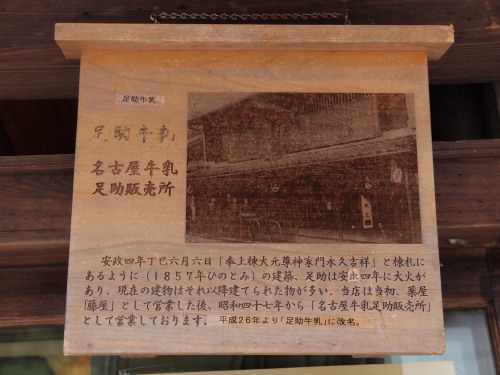 足助牛乳
足助牛乳
名古屋牛乳
足助販売所
安政四年丁巳六月六日「奉上棟大元尊神家門永久吉祥」と棟札に
あるように（1857年ひのとみ）の建築、足助は安永四年に大火が
あり、現在の建物はそれ以降建てられた物が多い。当店は当初、薬屋
「藤屋」として営業した後、昭和四十七年から「名古屋牛乳足助販売所」
として営業しております。平成26年より「足助牛乳」に改名。